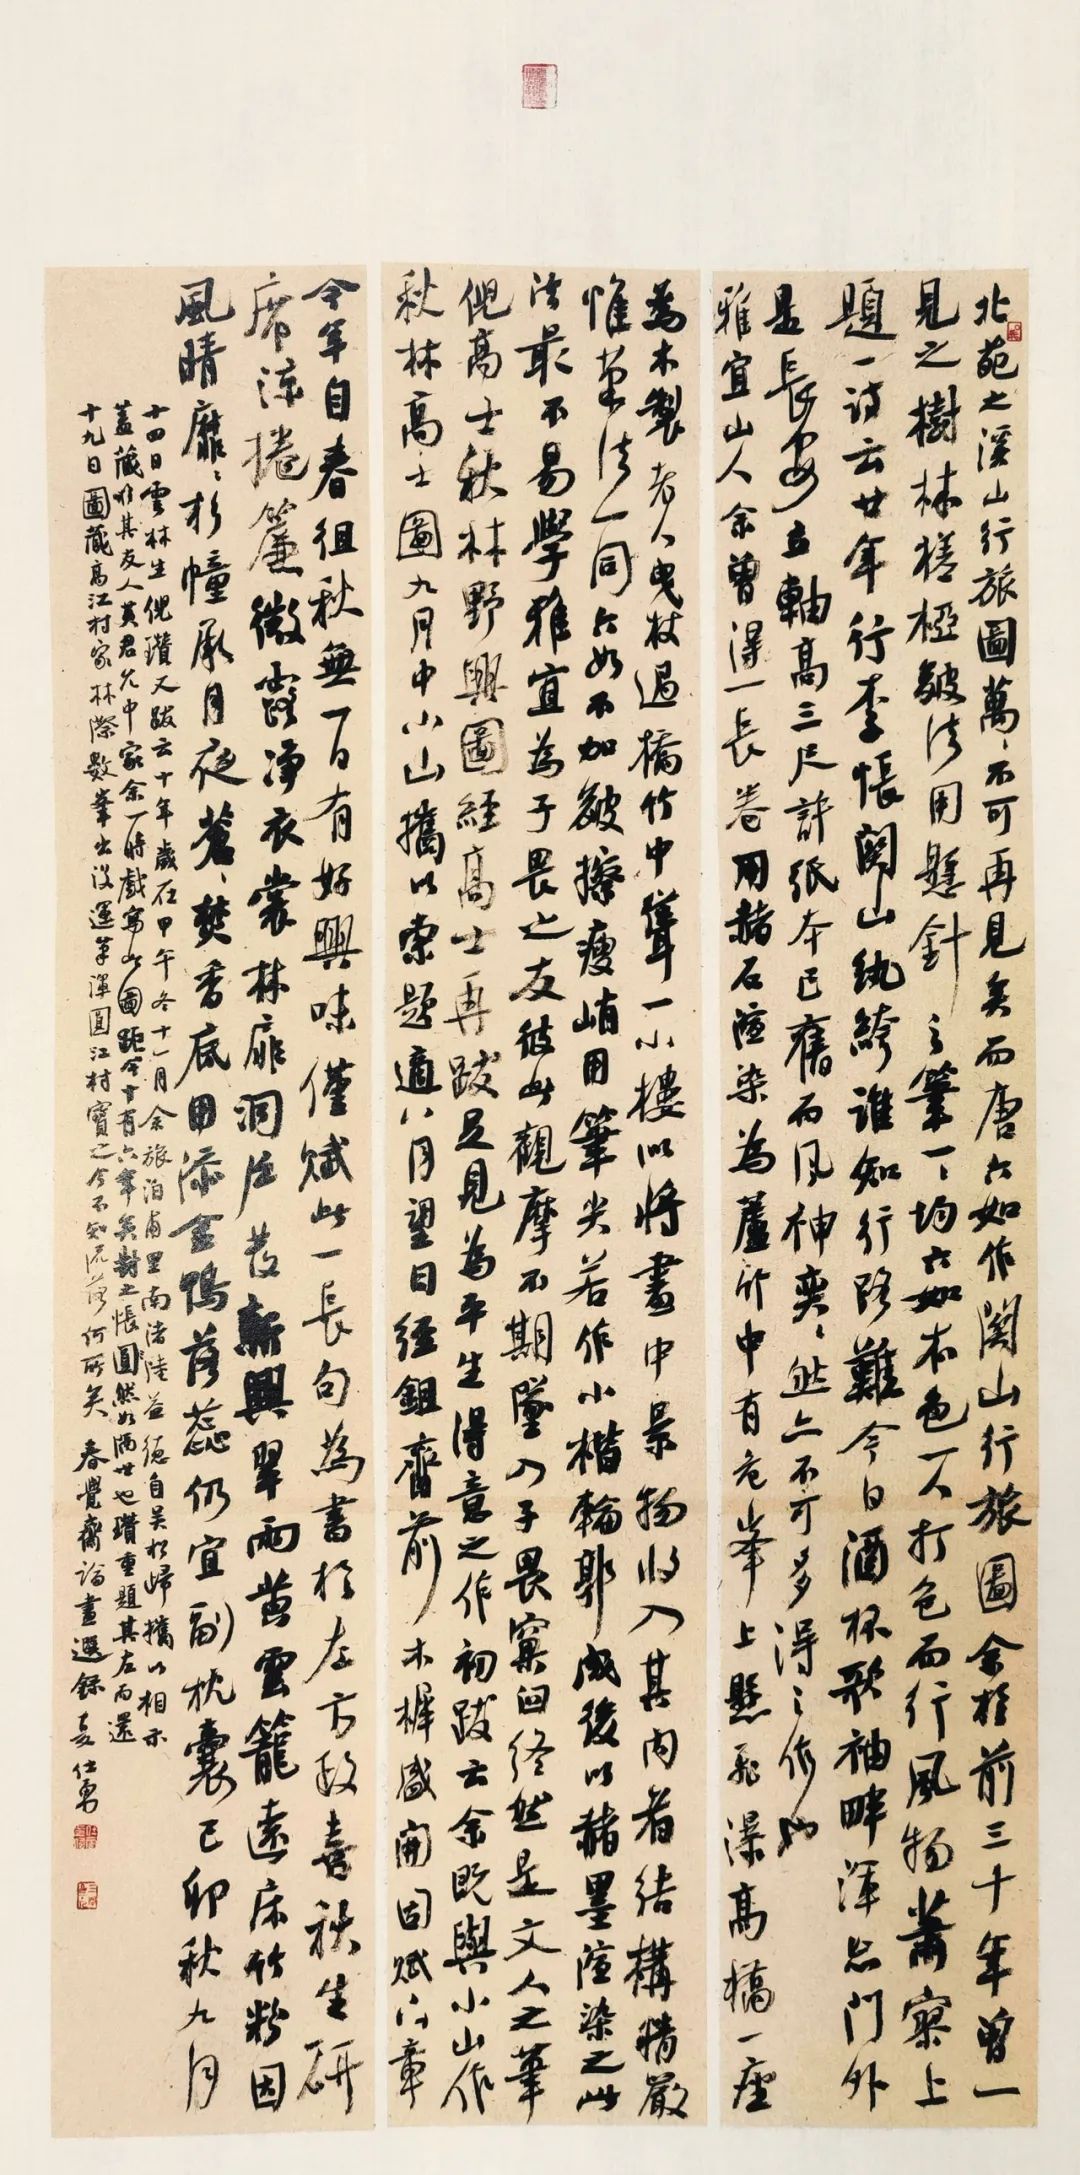 北苑之溪山行旅圖萬、不可再見矣而唐六如作關山行旅圖余於前三十年曾一
見之樹林槎椏皴法用懸針之筆一、均六如本色一人打包而行風物蕭寥上
題一詩云廿年行李悵關山紈綺誰知行路難今日酒杯歌袖畔渾忘門外
是長安立軸高三尺許紙本已舊而風神奕、然亦不可多得之作也
雅宜山人余曾得一長卷用赭石渲染為蘆竹中有危峯上懸飛瀑高橋一座
為木製老人曳杖過橋竹中聳一小樓似將畫中景物收入其內者結構精嚴
惟筆法一同六如不加皴擦瘦峭用筆尖若作小楷輪郭成後以赭墨渲染之此
法最不易學雅宜為子畏之友彼此觀摩不期墮入子畏窠臼終然是文人之筆
倪高士秋林野興圖經高士再跋足見為平生得意之作初跋云余既與小山作
秋林高士圖九月中小山攜以索題適八月望日經鉏齋前木樨盛開因賦六章
今年自春徂秋無一日有好興味僅賦此一長句為書於左方政喜秋生研
席涼捲簾微露淨衣裳林扉洞戶發新興翠雨黃雲籠遠床竹粉因
風晴靡、杉幢承月夜蒼、焚香底用添金鴨落蕊仍宜副枕囊己卯秋九月
十四日雲林生倪瓚又跋云十年歲在甲午冬十一月余旅泊甫里南渚陸益德自吳松歸攜以相示
蓋藏於其友人黃君允中家余一時戲寫此圖距今十有六年矣對之悵罔然如隔世也瓚重題其左而還
十九日圖藏高江村家林際數峯出沒運筆渾圓江村寶之今不知流落何所矣 春覺齋論畫選錄 袁仕勇